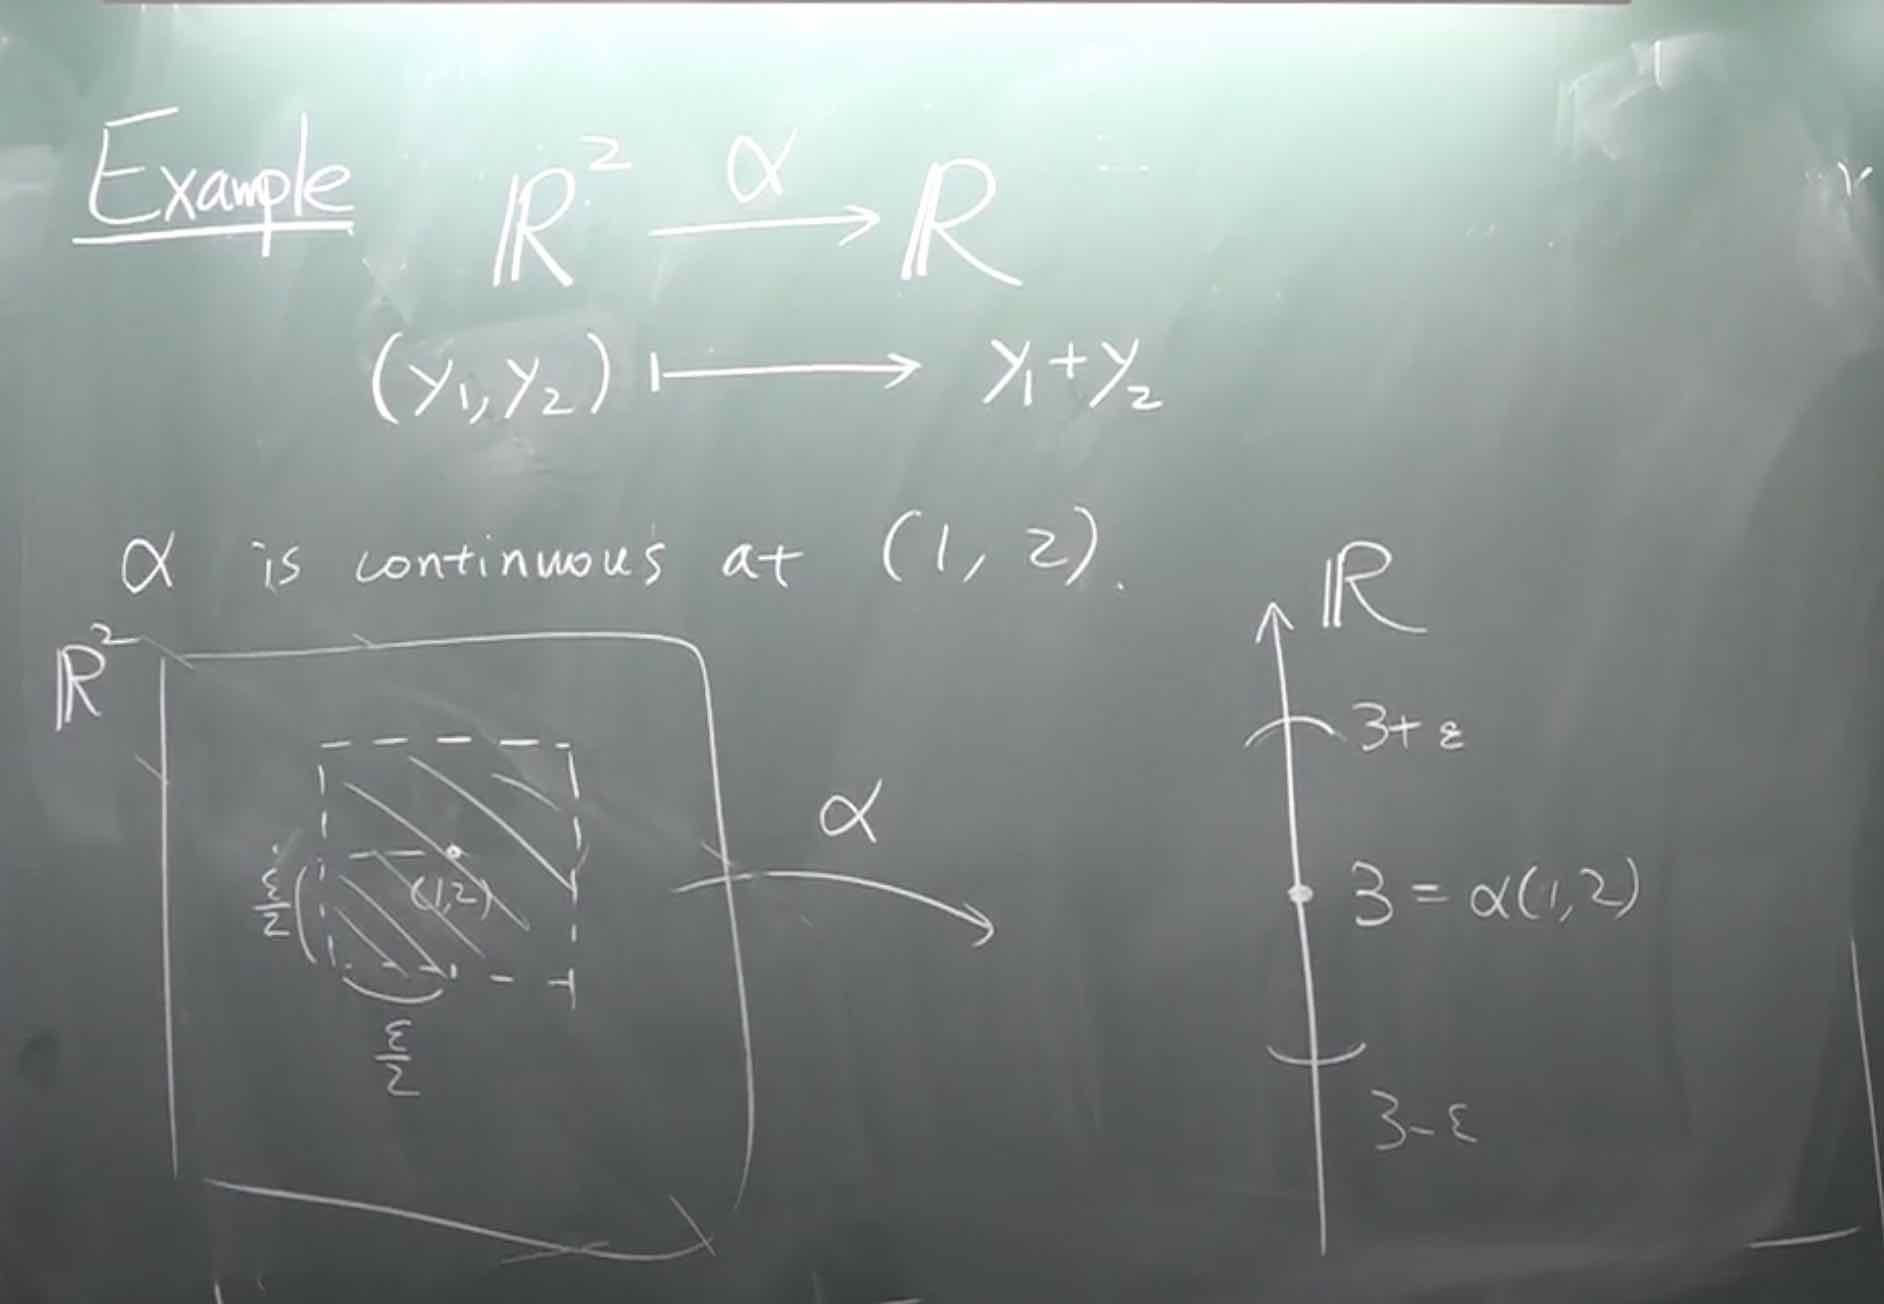 Example ℝ² —α→ ℝ
(y₁, y₂) ⟼ y₁+y₂
α is continuous at (1, 2).
ℝ²
ℝ
3+ε
α
(1,2)
ε/2
3 = α(1,2)
ε/2
3-ε